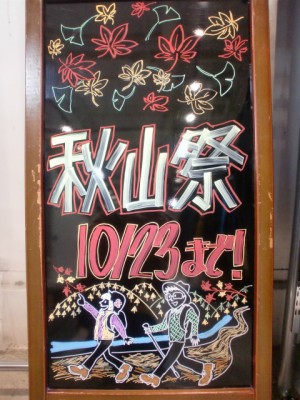 秋山祭
10/23まで!